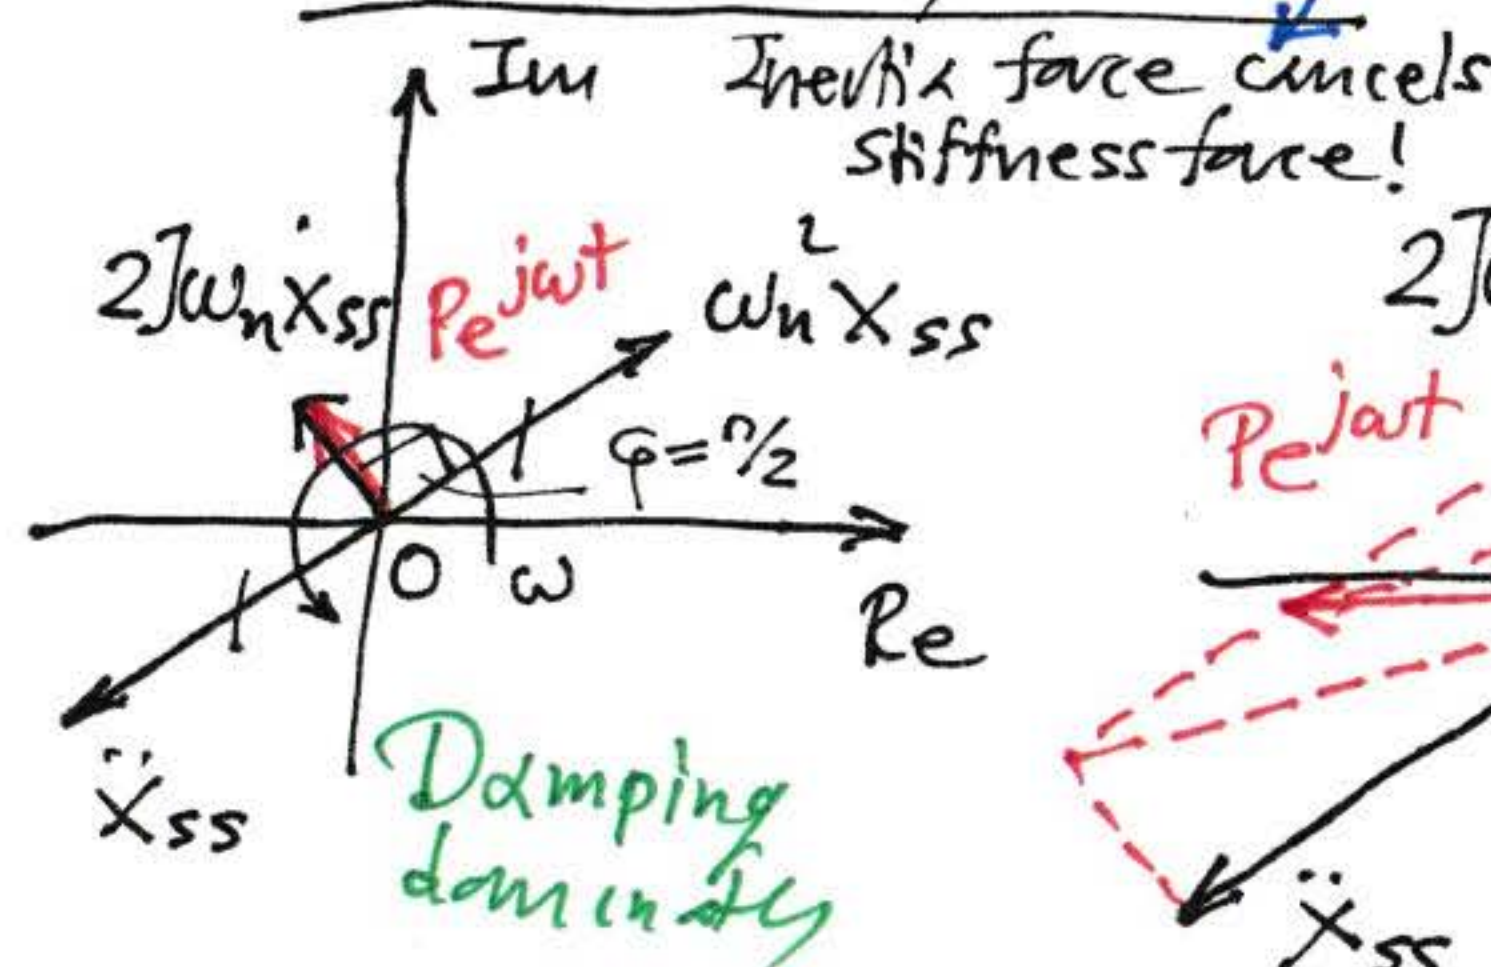 Im
Inertia force cancels
stiffness force!
2ζωₙẋss
Pe^jωt
ωₙ²Xss
φ=π/2
O
ω
Re
Ẍss
Damping
dominates
2ζ
Pe^jωt
Ẍss